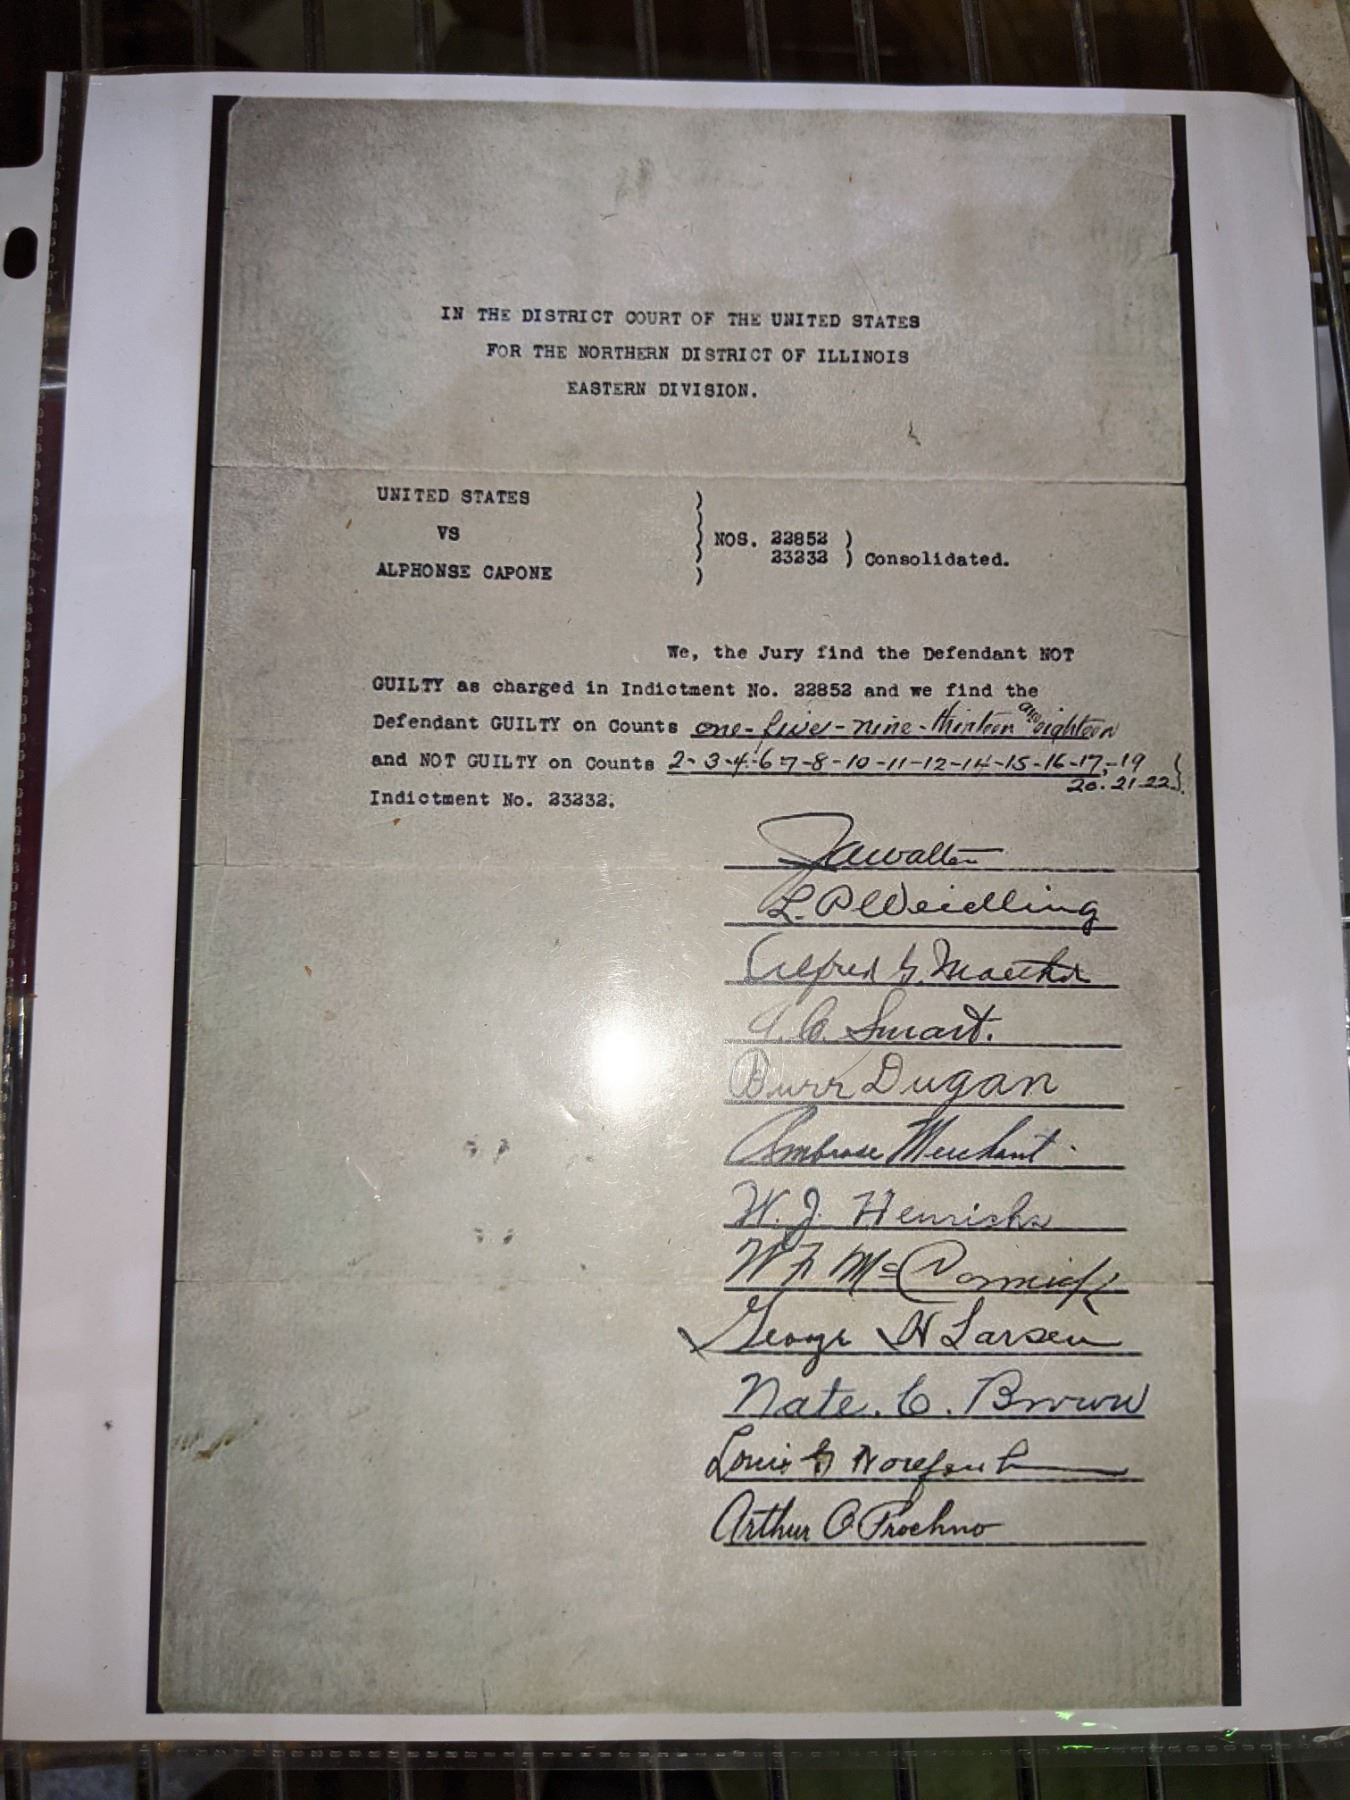 IN THE DISTRICT COURT OF THE UNITED STATES
FOR THE NORTHERN DISTRICT OF ILLINOIS
EASTERN DIVISION.
UNITED STATES
VS
ALPHONSE CAPONE
NOS. 22852 )
23232 ) Consolidated.
We, the Jury find the Defendant NOT
GUILTY as charged in Indictment No. 22852 and we find the
Defendant GUILTY on Counts one-five-nine-thirteen and eighteen
and NOT GUILTY on Counts 2-3-4-6 7-8-10-11-12-14-15-16-17-19
20-21-22
Indictment No. 23232.
JAWalter
L. P. Weidling
A. C. Smart.
Burr Dugan
Ambrose Merchant
W. J. Henrichs
W F McCormick
George H Larsen
Nate. C. Brown
Louis G
Arthur O Prochno